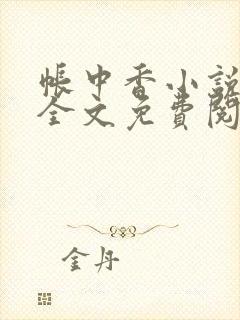 帳中香小說
全文免費閱
金丹